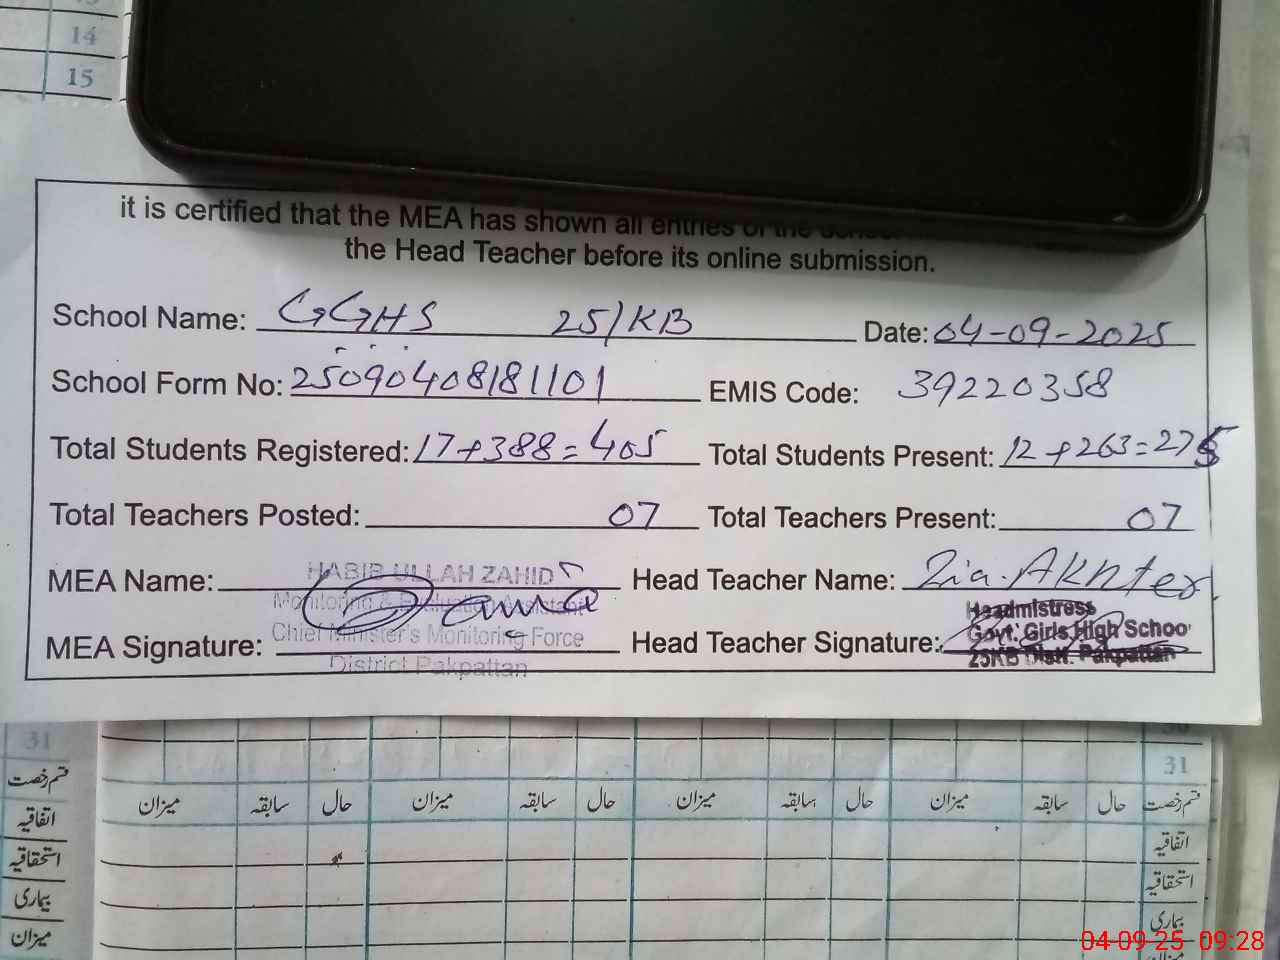 14
15
it is certified that the MEA has shown all entries of the
the Head Teacher before its online submission.
School Name: GGHS 25/KB Date: 04-09-2025
School Form No: 25090408181101 EMIS Code: 39220358
Total Students Registered: 17+388=405 Total Students Present: 12+263=275
Total Teachers Posted: 07 Total Teachers Present: 07
MEA Name: HABIB ULLAH ZAHID Head Teacher Name: Zia Akhter
Monitoring & Evaluation Assistant
Headmistress
MEA Signature: Chief Minister's Monitoring Force Head Teacher Signature: Govt. Girls High School
District Pakpattan
25KB Distt. Pakpattan
31
31
قسم رخصت
میزان سابقہ حال میزان سابقہ حال میزان سابقہ حال میزان سابقہ حال قسم رخصت
اتفاقیہ
اتفاقیہ
استحقاقیہ
استحقاقیہ
بیماری
بیماری
میزان
04-09-25 09:28